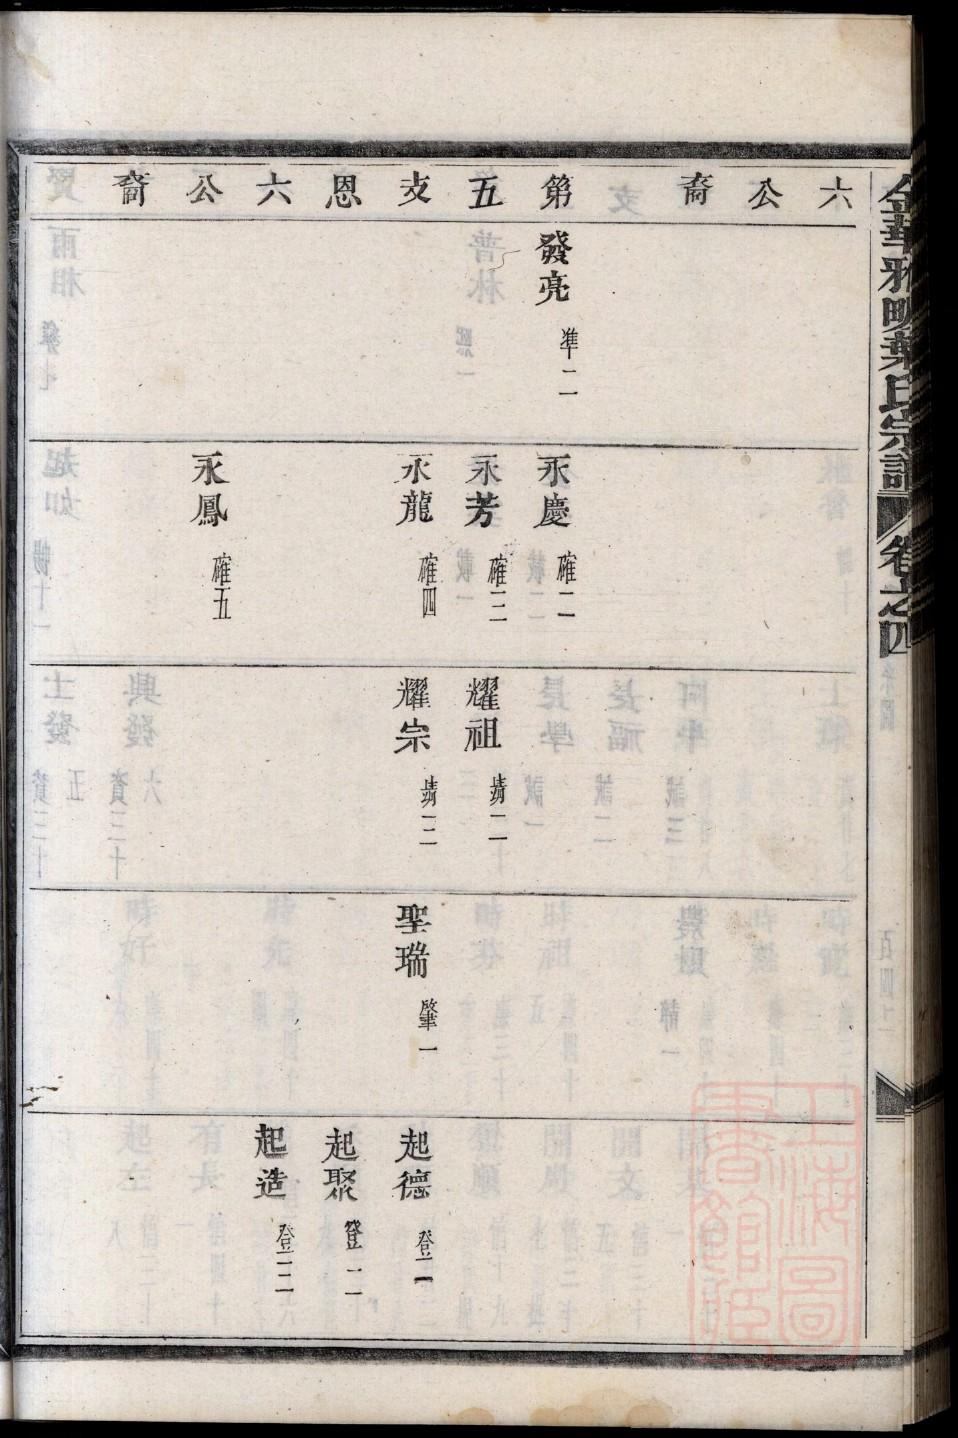 金華雅畈葉氏宗譜 卷之四
六公裔
第五支恩六公裔
發亮 準二
永慶 確二
永芳 確三
永龍 確四
永鳳 確五
耀祖 靖二
耀宗 靖三
聖瑞 肇一
起德 登一
起聚 登二
起造 登三
上海圖書館藏